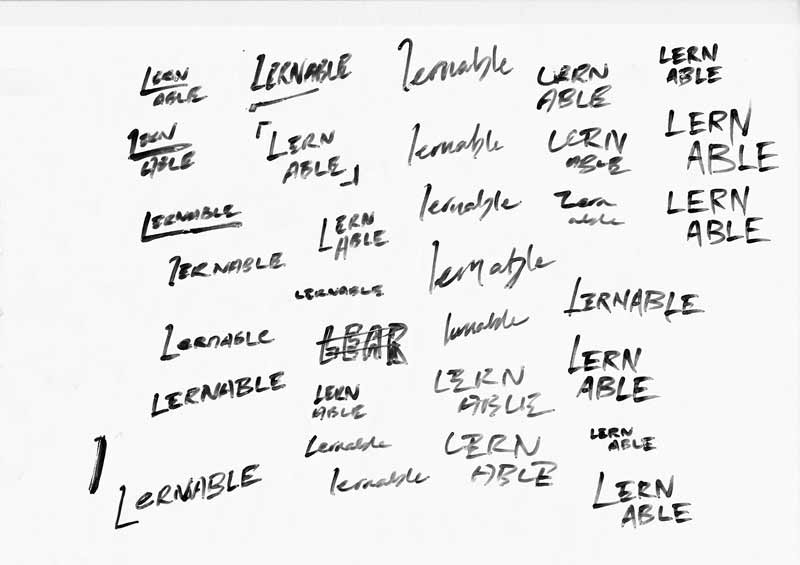 LERN
ABLE
LERNABLE
lernable
LERN
ABLE
LERN
ABLE
LERN
ABLE
「LERN
ABLE」
lernable
LERN
ABLE
LERN
ABLE
LERNABLE
LERN
ABLE
lernable
Lern
able
LERN
ABLE
lERNABLE
LERNABLE
lernable
LERNABLE
Lernable
lernable
LERN
ABLE
LERNABLE
LERN
ABLE
LERN
ABLE
Lernable
LERN
ABLE
LERN
ABLE
LerNABLE
lernable
LERN
ABLE